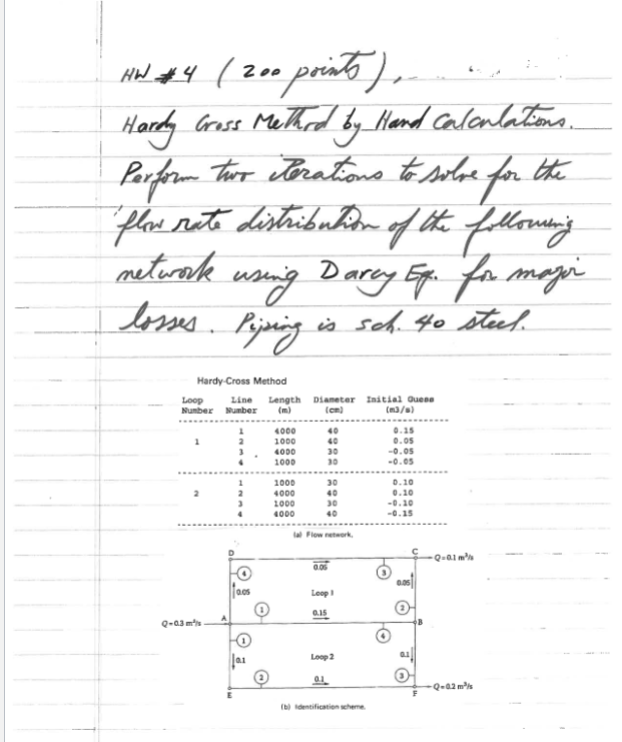 HW #4 (200 points).
Hardy Cross Method by Hand Calculations.
Perform two iterations to solve for the
flow rate distribution of the following
network using Darcy Eq. for major
losses. Piping is sch. 40 steel.
Hardy-Cross Method
Loop Line Length Diameter Initial Guess
Number Number (m) (cm) (m3/s)
1 4000 40 0.15
1 2 1000 40 0.05
3 4000 30 -0.05
4 1000 30 -0.05
1 1000 30 0.10
2 2 4000 40 0.10
3 1000 30 -0.10
4 4000 40 -0.15
(a) Flow network.
D C
Q=0.1 m³/s
4 0.05 3
0.05 Loop 1 0.05
1 2
0.15
Q=0.3 m³/s A B
1 4
0.1 Loop 2 0.1
2 0.1 3
Q=0.2 m³/s
E F
(b) Identification scheme.